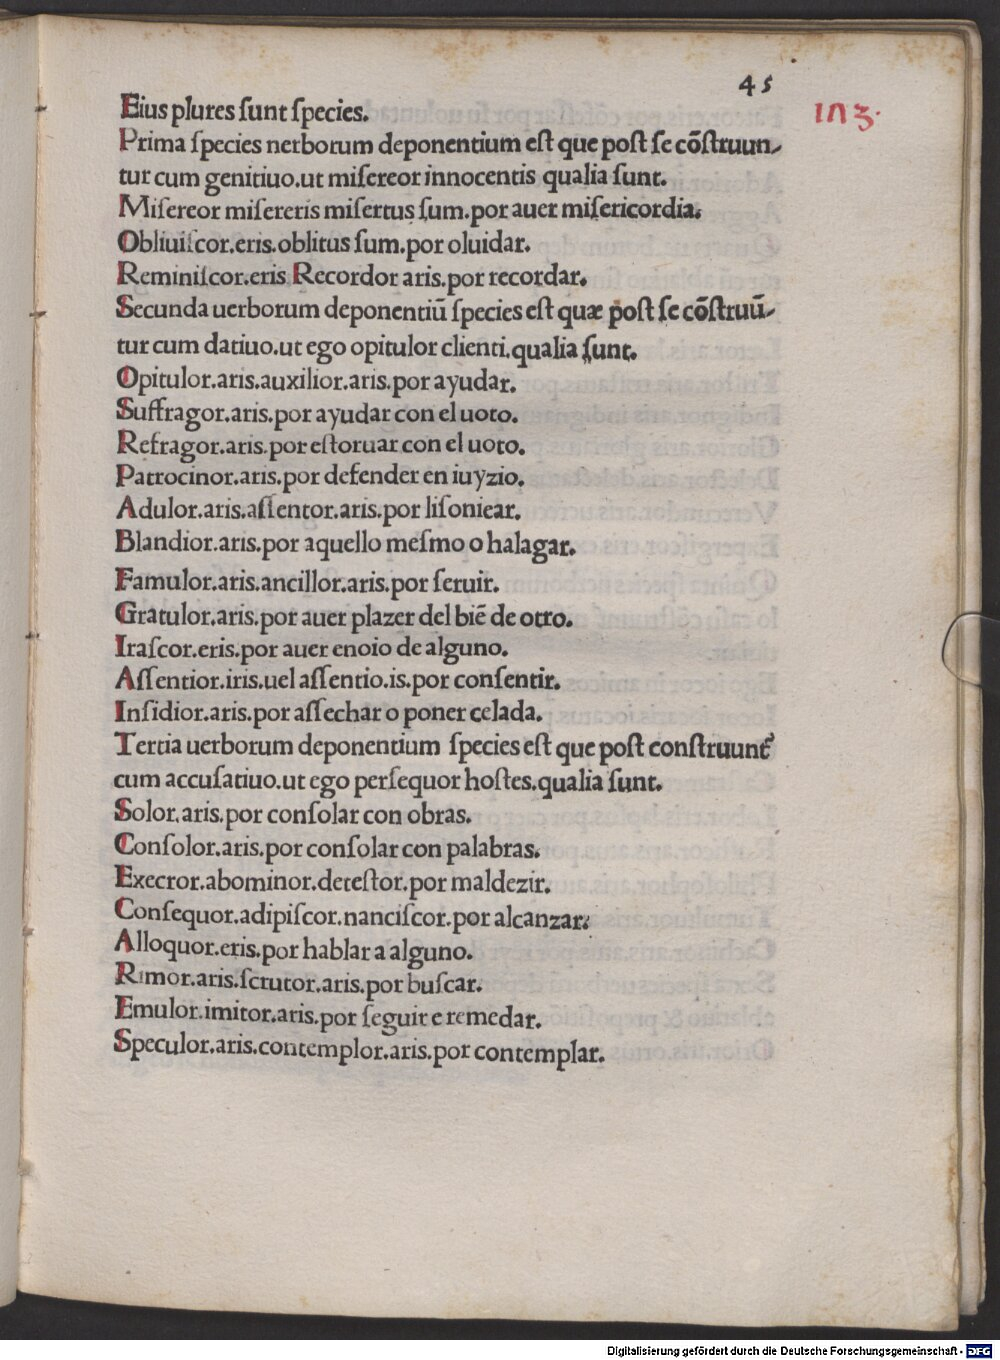 45
Eius plures ſunt ſpecies.
Prima ſpecies nerborum deponentium eſt que poſt ſe cõſtruun-
tur cum genitiuo.ut miſereor innocentis qualia ſunt.
Miſereor miſereris miſertus ſum.por auer miſericordia.
Obliuiſcor.eris.oblitus ſum.por oluidar.
Reminiſcor.eris Recordor aris.por recordar.
Secunda uerborum deponentiũ ſpecies eſt quæ poſt ſe cõſtruũ-
tur cum datiuo.ut ego opitulor clienti.qualia ſunt.
Opitulor.aris.auxilior.aris.por ayudar.
Suffragor.aris.por ayudar con el uoto.
Refragor.aris.por eſtoruar con el uoto.
Patrocinor.aris.por defender en iuyzio.
Adulor.aris.aſſentor.aris.por liſoniear.
Blandior.aris.por aquello meſmo o halagar.
Famulor.aris.ancillor.aris.por ſeruir.
Gratulor.aris.por auer plazer del biẽ de otro.
Iraſcor.eris.por auer enoio de alguno.
Aſſentior.iris.uel aſſentio.is.por conſentir.
Inſidior.aris.por aſſechar o poner celada.
Tertia uerborum deponentium ſpecies eſt que poſt conſtruunt᷑
cum accuſatiuo.ut ego perſequor hoſtes.qualia ſunt.
Solor.aris.por conſolar con obras.
Conſolor.aris.por conſolar con palabras.
Execror.abominor.deteſtor.por maldezir.
Conſequor.adipiſcor.nanciſcor.por alcanzar.
Alloquor.eris.por hablar a alguno.
Rimor.aris.ſcrutor.aris.por buſcar.
Emulor.imitor.aris.por ſeguir e remedar.
Speculor.aris.contemplor.aris.por contemplar.
Digitalisierung gefördert durch die Deutsche Forschungsgemeinschaft - DFG